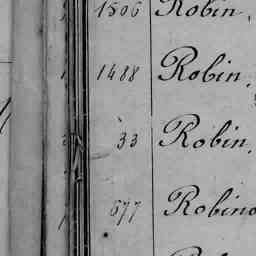 1506 Robin,
1488 Robin,
33 Robin,
677 Robin